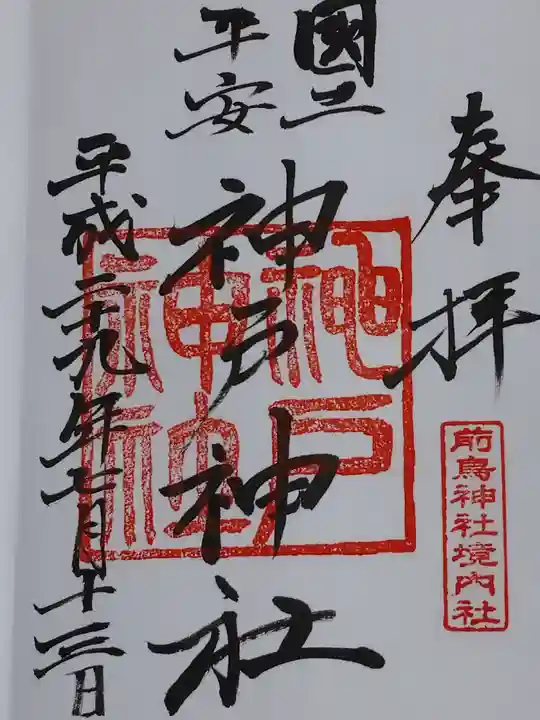 奉拝
前鳥神社境内社
國土
平安
神戸神社
神戸神社
平成二十九年七月十三日